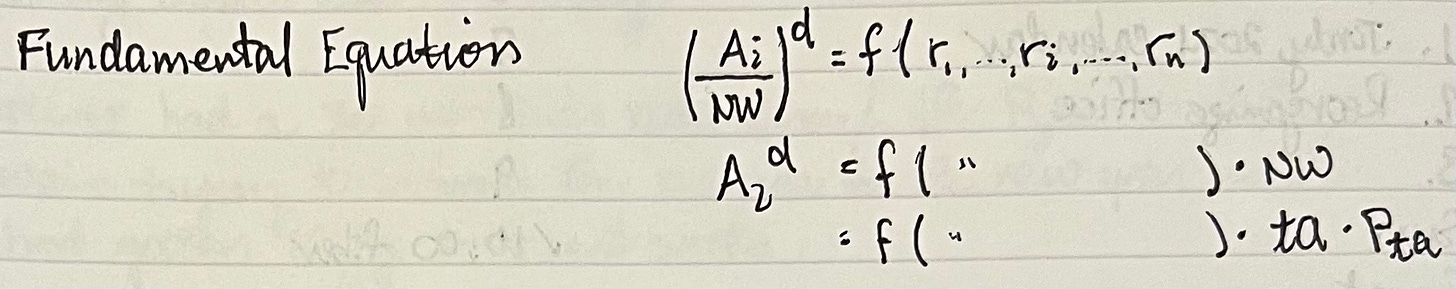 Fundamental Equation (Ai/NW)^d = f(r1,...,ri,...,rn)
A2^d = f( " ) · NW
= f( " ) · ta · Pta